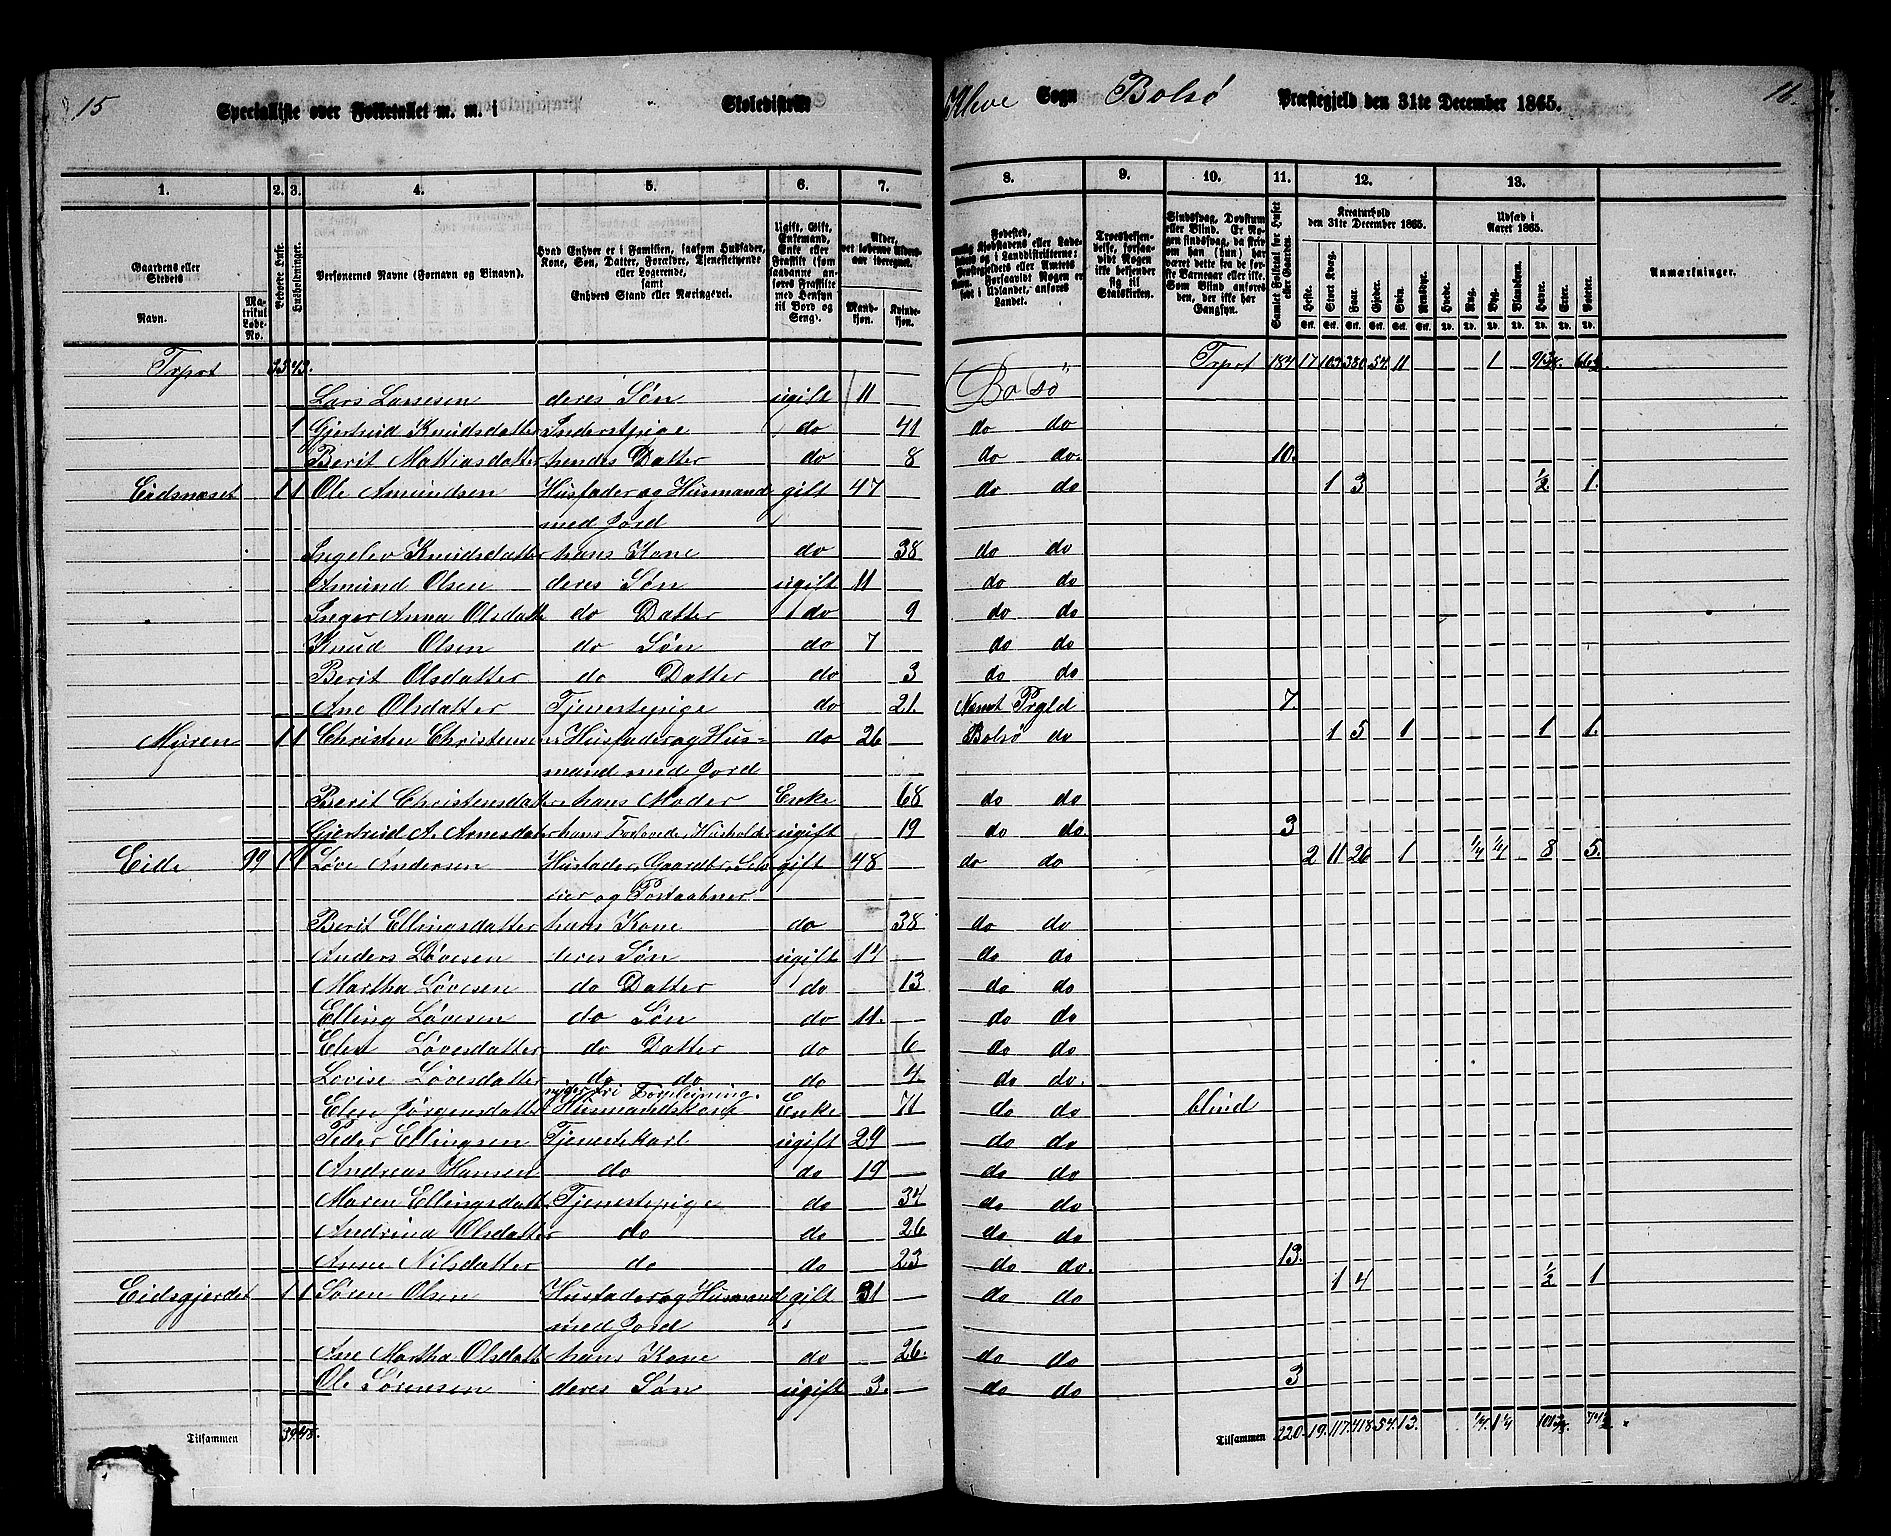 15 Specialliste over Folketallet m. m. i Skoledistrikt Kleve Sogn Bolsø Præstegjeld den 31te December 1865. 16.
1. 2. 3. 4. 5. 6. 7. 8. 9. 10. 11. 12. 13.
Gaardens eller Stedets
Navn.
Matrikul Løbe-No.
Beboede Huse.
Husholdninger.
Personernes Navne (Fornavn og Binavn).
Hvad Enhver er i Familien, saasom Husfader, Kone, Søn, Datter, Forældre, Tjenestetyende eller Logerende, samt Enhvers Stand eller Næringsvei.
Ugift, Gift, Enkemand, Enke eller Fraskilt (som saadanne anføres Fraskilte med Hensyn til Bord og Seng).
Alder, det løbende Alders-aar iberegnet.
Mandkjøn. Kvindekjøn.
Troesbekjendelse, forsaavidt Nogen ikke bekjender sig til Statskirken.
Samlet Folketal for Huset eller Gaarden.
Kreaturhold den 31te December 1865.
Heste. Stort Kvæg. Faar. Gjeder. Svin. Rensdyr.
Udsæd i Aaret 1865.
Hvede. Rug. Byg. Blandkorn. Havre. Erter. Poteter.
Anmærkninger.
Trpot 43. Trpot 184 17 103 380 54 11 1
Lars Larsesen deres Søn ugift 11 Bolsø
1 Gjertrud Knudsdatter Inderstpige do 41 do do
Berit Mattiasdatter hendes Datter do 8 do do. 10.
Eidsnæset 1 1 Ole Amundsen Husfader og Husmand gift 47 do do 1 3 ½ 1.
med Jord
Ingelev Knudsdatter hans Kone do 38 do do
Amund Olsen deres Søn ugift 11 do do
Inger Anna Olsdatte do Datter do 9 do do
Knud Olsen do Søn do 7 do do
Berit Olsdatter do Datter do 3 do do
Ane Olsdatter Tjenestepige do 21. Nesset Prgld 7
Myren 1 1 Christen Christensen Husfader og Hus= do 26 Bolsø do 1 5 1 1 1.
mand med Jord
Berit Christensdatter hans Moder Enke 68 do do
Gjertrud A. Arnesdat hans Forlovede, Husholder ugift 19 do do 3
Eide 99 1 1 Løve Andersen Husfader, Gaardbr, Selv gift 48 do do 2 11 26 1 ¼ ¼ 8 5.
eier og Postaabner
Berit Ellingsdatter hans Kone do 38 do do
Anders Løvesen deres Søn ugift 14 do do
Martha Løvesen do Datter do 13 do do
Elling Løvesen do Søn do 11. do do
Elen Løvesdatter do Datter do 6 do do
Lovise Løvesdatter do do do 4 do do.
nyder fri Forpleining.
Elen Jørgensdatter Husmandskone Enke 71 do do blind
Peder Ellingsen Tjenestekarl ugift 29 do do
Andreas Hansen do do 19 do do
Maren Ellingsdatt Tjenestepige do 34 do do
Andrina Olsdatter do do 26 do do
Anne Nilsdatter do do 23 do do. 13.
Eidsgjerdet 1 1 Søren Olsen Husfader og Husmand gift 31 do do 1 4 ½ 1
med Jord
Ane Martha Olsdatt hans Kone do 26. do do
Ole Sørensen deres Søn ugift 3. do do 3
Tilsammen 39 48. Tilsammen 220. 19. 117. 418. 54. 13. ¼. 1¼